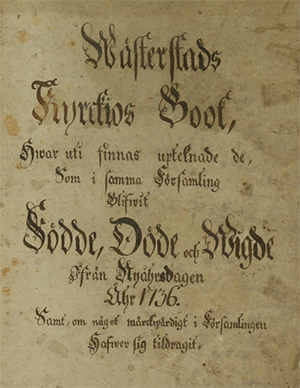 Wästerstads
Kyrckios Book,
Hwar uti finnas upteknade de,
Som i samma Församling
Blifwit
Födde, Döde och Wigde
Ifrån Nyåhrsdagen
Åhr 1736.
Samt, om något märckwärdigt i Församlingen
Hafwer sig tildragit.